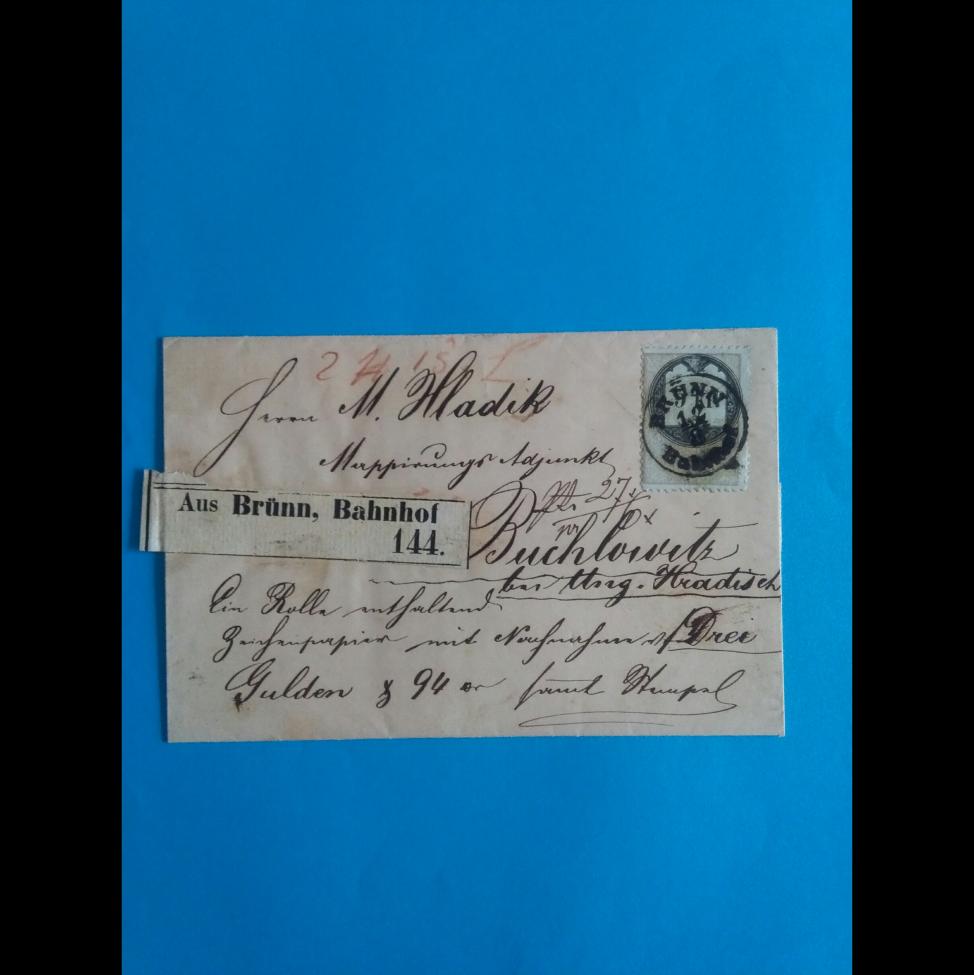 2 H 15
Herrn M. Hladik
Mappirungs Adjunkt
BRÜNN
Bahnhof
Aus Brünn, Bahnhof
144.
27
Buchlowitz
bei Ung. Hradisch
Ein Rolle enthaltend
Zeichenpapier mit Nachnahme v/ Drei
Gulden & 94 xr samt Stempel